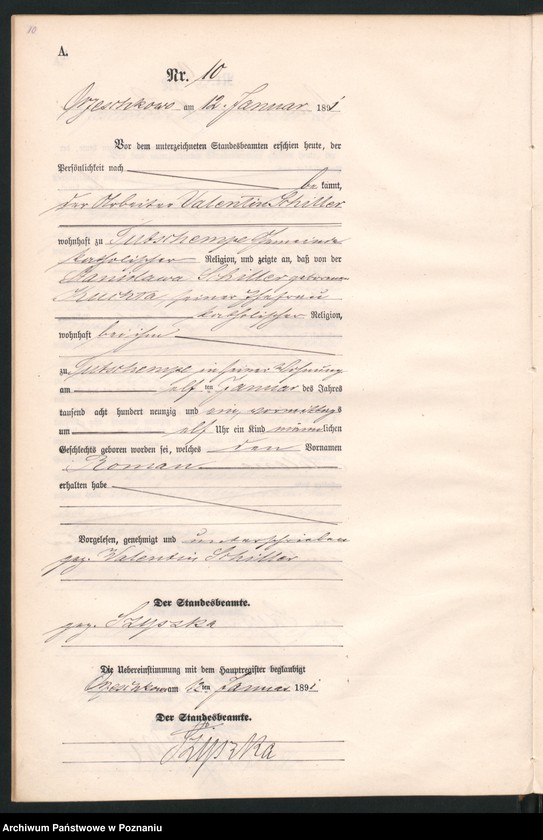 10
A.
Nr. 10
Orzeschkowo am 12. Januar 1891
Vor dem unterzeichneten Standesbeamten erschien heute, der
Persönlichkeit nach
be kannt,
der Arbeiter Valentin Schiller
wohnhaft zu Tutschempe Gemeinde
katholischer Religion, und zeigte an, daß von der
Stanislawa Schiller geborenen
Kuchta seiner Ehefrau
katholischer Religion,
wohnhaft bei ihm
zu Tutschempe in seiner Wohnung
am elf ten Januar des Jahres
tausend acht hundert neunzig und ein, vormittags
um elf Uhr ein Kind männlichen
Geschlechts geboren worden sei, welches den Vornamen
Roman
erhalten habe
Vorgelesen, genehmigt und unterschrieben
gez. Valentin Schiller
Der Standesbeamte.
gez. Szyszka
Die Uebereinstimmung mit dem Hauptregister beglaubigt
Orzeschkowo am 12 ten Januar 1891
Der Standesbeamte.
Szyszka
Archiwum Państwowe w Poznaniu